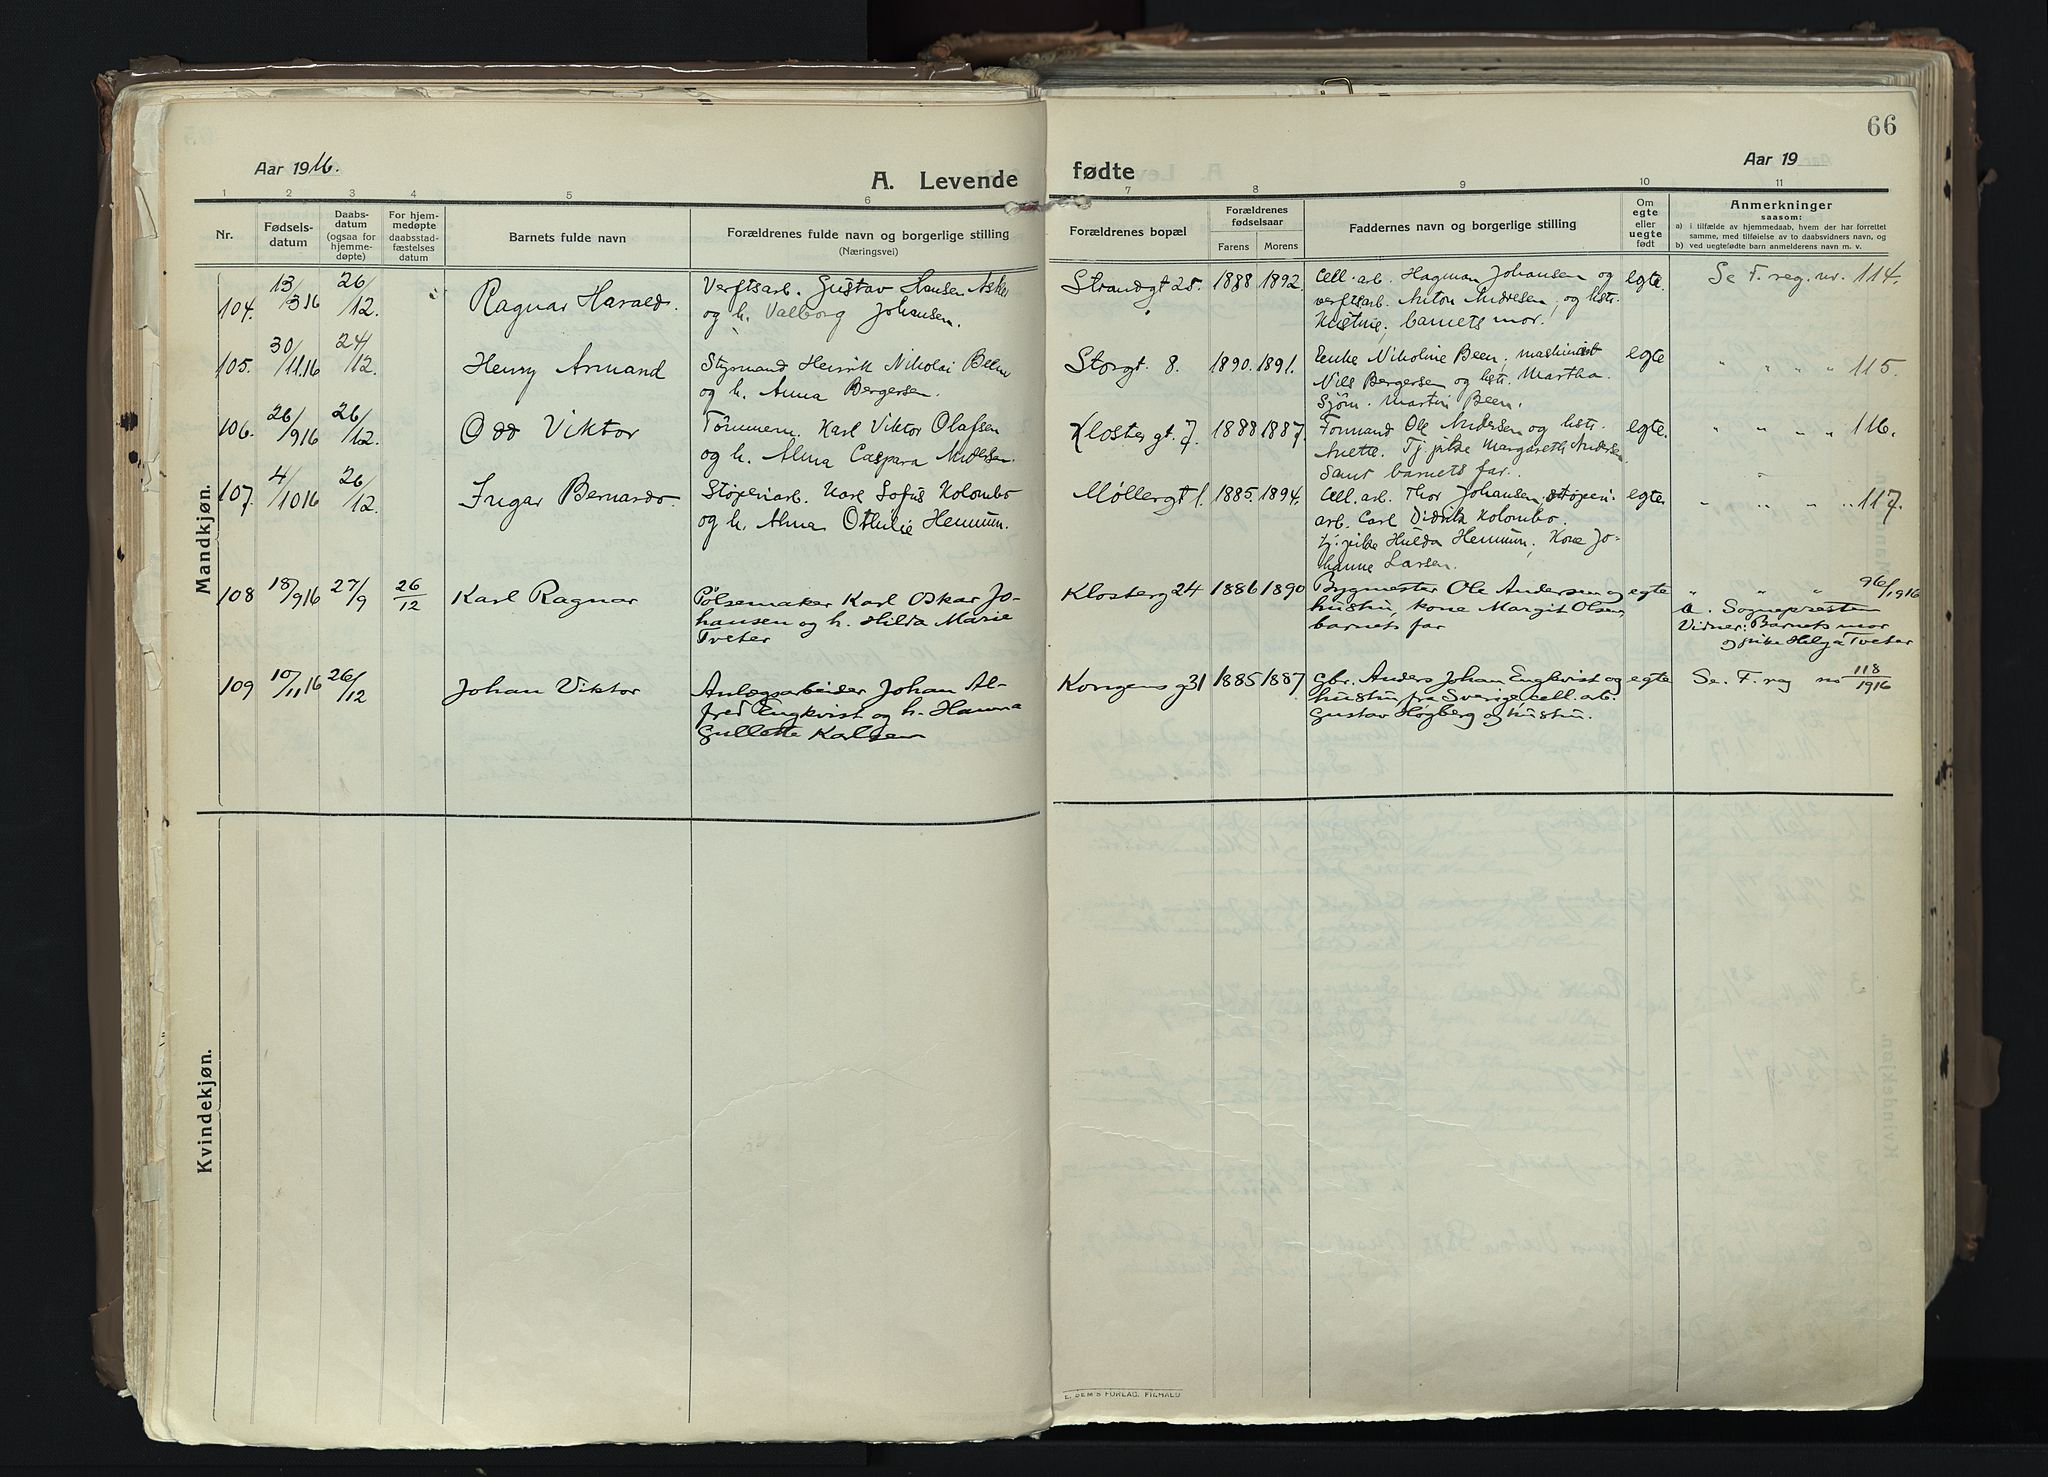 66
Aar 1916.
A. Levende
fødte
Aar 19
1 2 3 4 5 6 7 8 9 10 11
Nr.
Fødsels-
datum
Daabs-
datum
(ogsaa for
hjemme-
døpte)
For hjem-
medøpte
daabsstad-
fæstelses
datum
Barnets fulde navn
Forældrenes fulde navn og borgerlige stilling
(Næringsvei)
Forældrenes bopæl
Forældrenes
fødselsaar
Farens Morens
Faddernes navn og borgerlige stilling
Om
egte
eller
uegte
født
Anmerkninger
saasom:
a) i tilfælde av hjemmedaab, hvem der har forrettet
samme, med tilføielse av to daabsvidners navn, og
b) ved uegtefødte barn anmelderens navn m. v.
Mandkjøn.
104. 13/3 16 26/12. Ragnar Harald. Verftsarb. Gustav Hansen Asker
og h. Valborg Johansen.
Strandgt 25. 1888 1892. Cell. arb. Hagman Johansen og
verftsarb. Anton Andresen, og hstr.
barnets mor.
egte. Se F. reg. nr. 114.
105. 30/11.16 24/12. Henry Armand Styrmand Henrik Nikolai Been
og h. Anna Bergersen.
Storgt. 8. 1890. 1891. Enke Nikoline Been, maskinist
Nils Bergersen og hstr. Martha.
Sjøm. Martin Been.
egte " " " " 115.
106. 26/9 16 26/12. Odd Viktor Tømmerm. Karl Viktor Olafsen
og h. Alma Caspara Andersen.
Klostergt. 7. 1888 1887. Formand Ole Andersen og hstr.
Anette. Tj. pike Margareth Andersen
samt barnets far.
egte. " " " " 116.
107. 4/10 16 26/12. Ingar Bernardo. Støperiarb. Karl Sofus Kolombo
og h. Alma Othilie Hemmim.
Møllergt 1. 1885. 1894. Cell. arb. Thor Johansen, støperi-
arb. Carl Didrik Kolombo.
tj. pike Hulda Hemmim, Kone Jo-
hanne Larsen.
egte " " " " 117.
108 18/9 16 27/9 26/12 Karl Ragnar Pølsemaker Karl Oskar Jo-
hansen og h. Hilda Marie
Tveter
Klosterg 24 1886 1890 Bygmester Ole Andersen og
hustru, kone Margit Olsen,
barnets far
egte " " " 96/1916
a. Sognepresten
Vidner: Barnets mor
og pike Helga Tveter
109 10/11 16 26/12 Johan Viktor Anlægsarbeider Johan Al-
fred Engkvist og h. Hanna
Gullette Karlsen
Kongens g 31 1885 1887. Gbr. Anders Johan Engkvist og
hustru fra Sverige, cell. arb.
Gustav Høgberg og hustru.
egte Se. F. reg no 118/1916
Kvindekjøn.
E. SEM'S FORLAG, FR.HALD